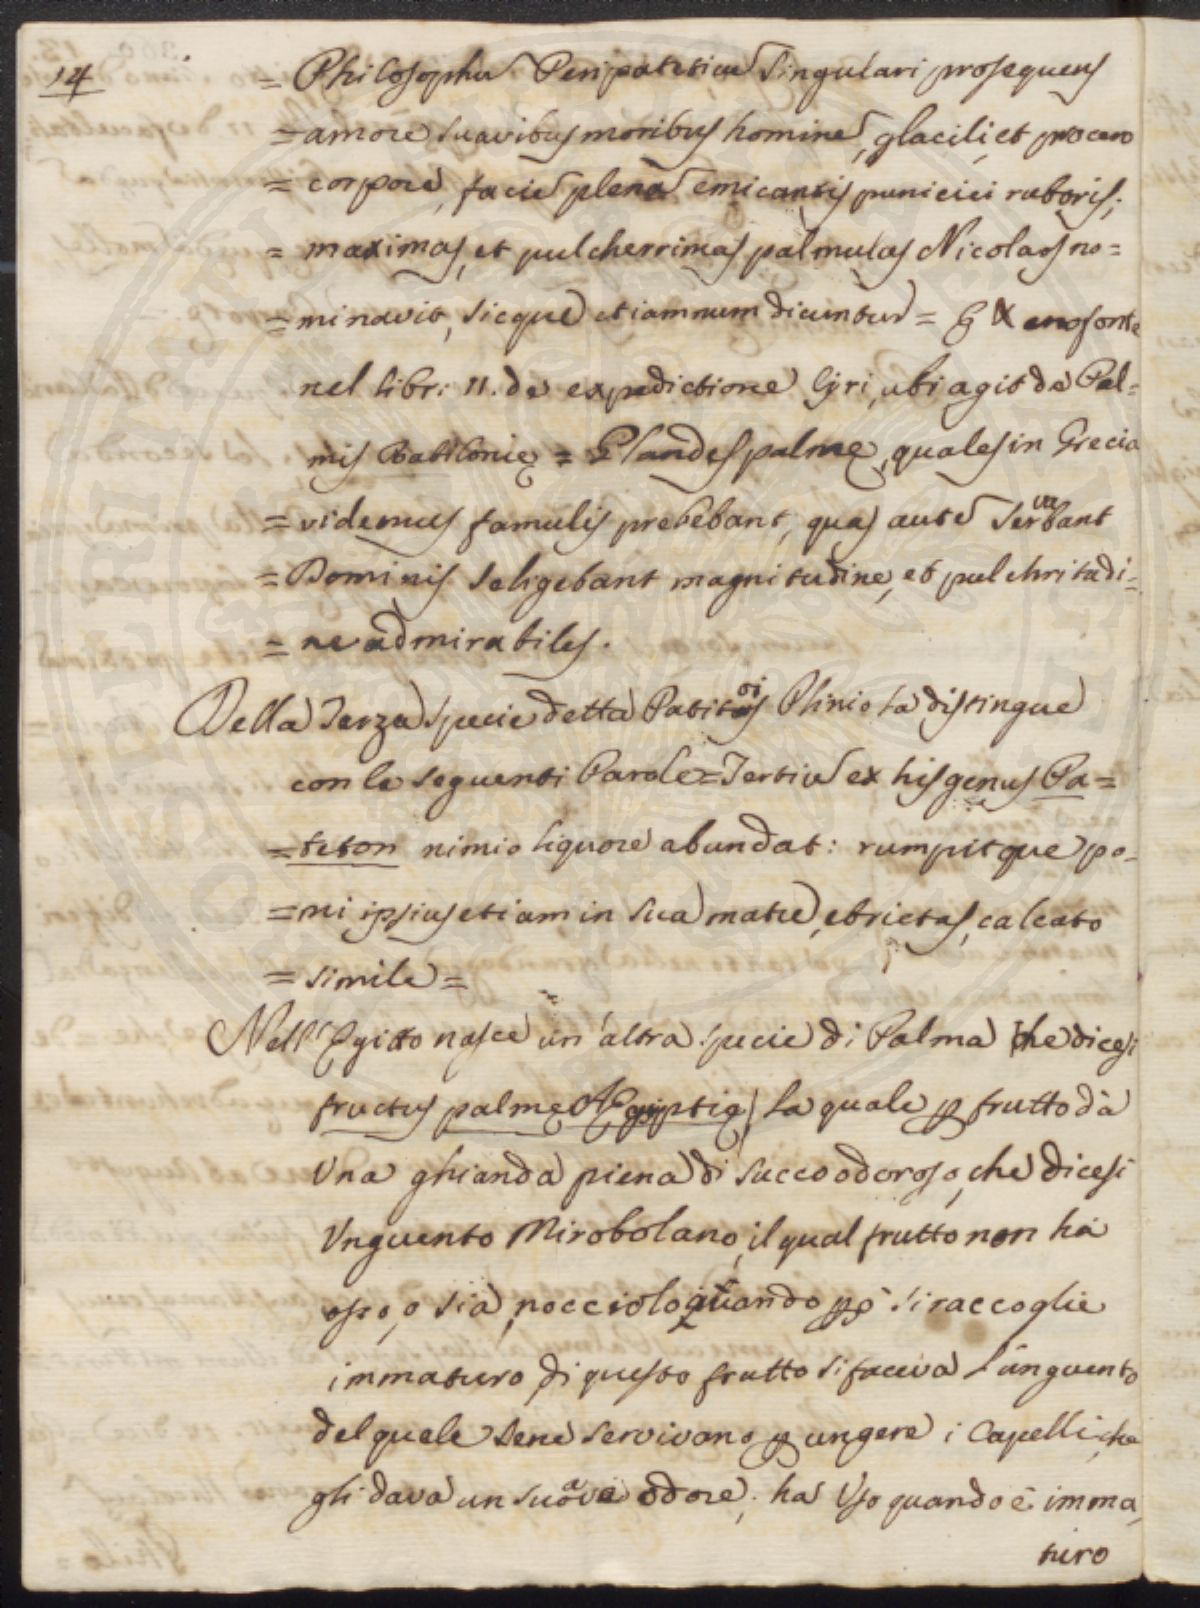 14
= Philosophu Peripateticu Singulari prosequens
= amore suavibus moribus homine, glacili, et procero
= corpore, facie plena emicantis puniciei ruboris;
= maximas, et pulcherrimas palmulas Nicolaos no=
= minavit, sicque etiamnum dicuntur = E Xenofonte
nel libr: II. de expedictione Cyri, ubi agit de Pal=
mis Babilonię = Glandes palmę, quales in Grecia
= videmus famulis prebebant, quas aute Servabant
= Dominis seligebant magnitudine, et pulchritudi=
= ne admirabiles.
Della Terza specie detta Patitoi Plinio la distingue
con le seguenti Parole = Tertiu ex his genus Pa=
= teton nimio liquore abundat: rumpitque po=
= mi ipsius etiam in sua matre, ebrietas, calcato
= simile =
Nell' Egitto nasce un' altra specie di Palma che dicesi
fructus palmę Aegyptię, la quale p frutto dà
Una ghianda piena di succo odoroso, che dicesi
Unguento Mirobolano, il qual frutto non ha
osso, o sia nocciolo, quando pò si raccoglie
immaturo, di questo frutto si faceva l'unguento
del quale sene servivano p ungere i Capelli, che
gli dava un suave odore; ha Uso quando è imma,
turo